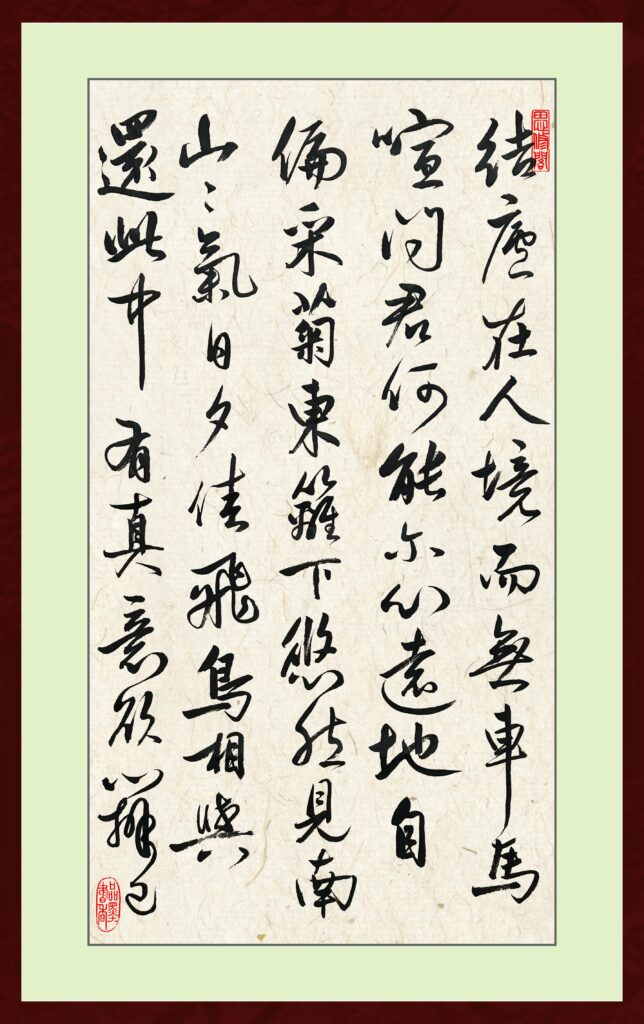 思修閣
結廬在人境而無車馬
喧问君何能尔心遠地自
偏采菊東籬下悠然見南
山〻氣日夕佳飛鳥相與
還此中有真意欲辯已